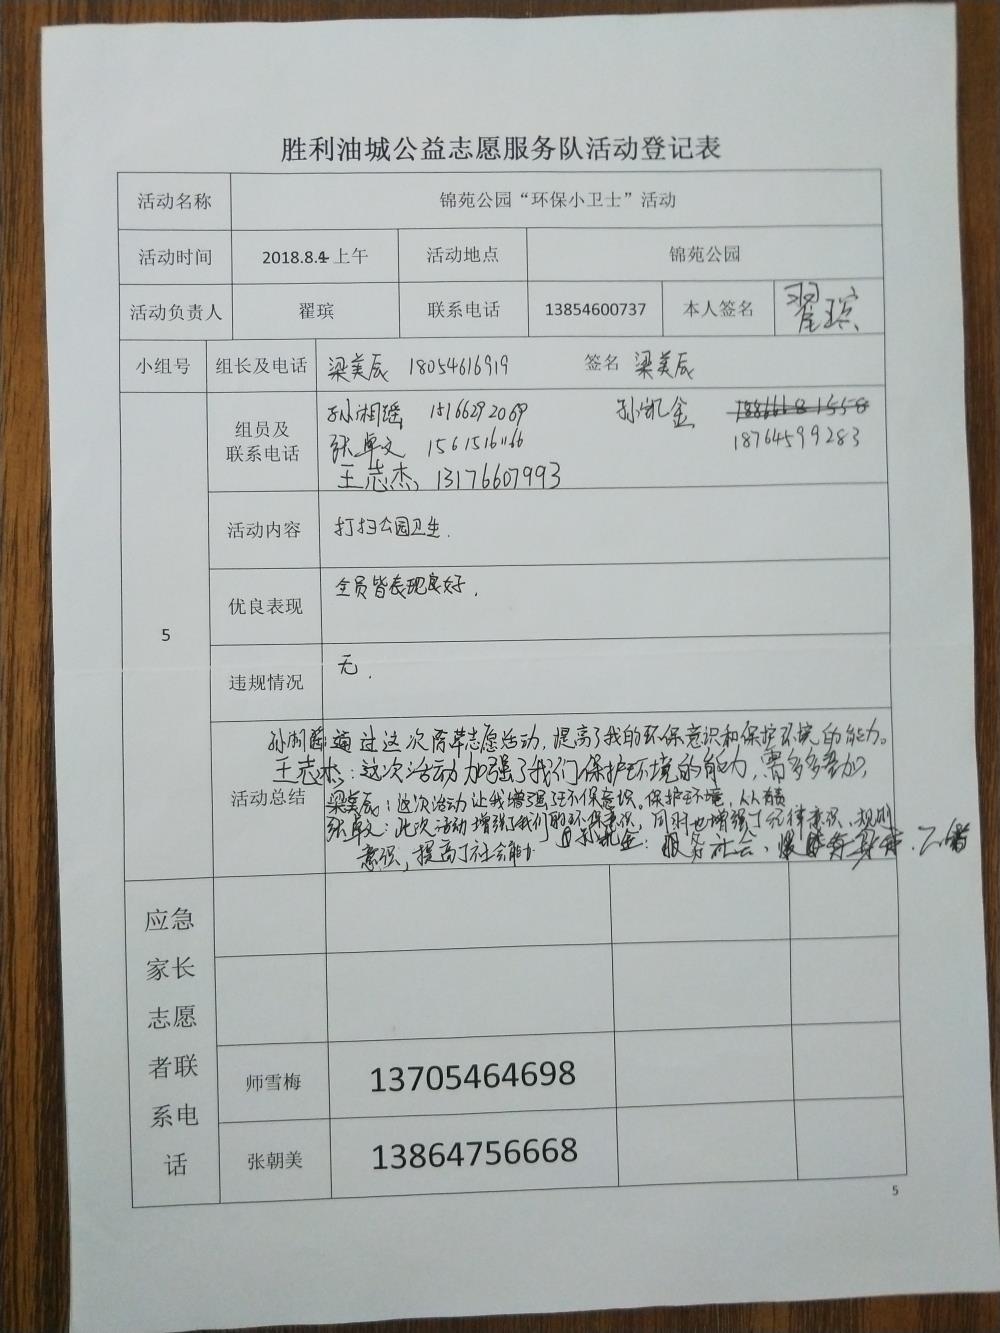 胜利油城公益志愿服务队活动登记表
活动名称 锦苑公园“环保小卫士”活动
活动时间 2018.8.4 上午 活动地点 锦苑公园
活动负责人 翟瑸 联系电话 13854600737 本人签名 翟瑸
小组号 组长及电话 梁美辰 18054616919 签名 梁美辰
组员及
联系电话
孙湘瑶 15166292069 孙凯金
张卓文 15615161166 18764599283
王志杰: 13176607993
活动内容 打扫公园卫生.
优良表现 全员皆表现良好.
5
违规情况 无.
活动总结
通过这次 志愿活动, 提高了我的环保意识和保护环境的能力。
王志杰: 这次活动加强了我们保护环境的能力, 需多多参加,
梁美辰: 这次活动让我增强环保意识。保护环境, 人人有责
张卓文: 此次活动增强了我们的环保意识, 同时也增强了纪律意识、规则
意识, 提高了社会能力 孙凯金: 服务社会、
应急
家长
志愿
者联
系电
话
师雪梅 13705464698
张朝美 13864756668
5